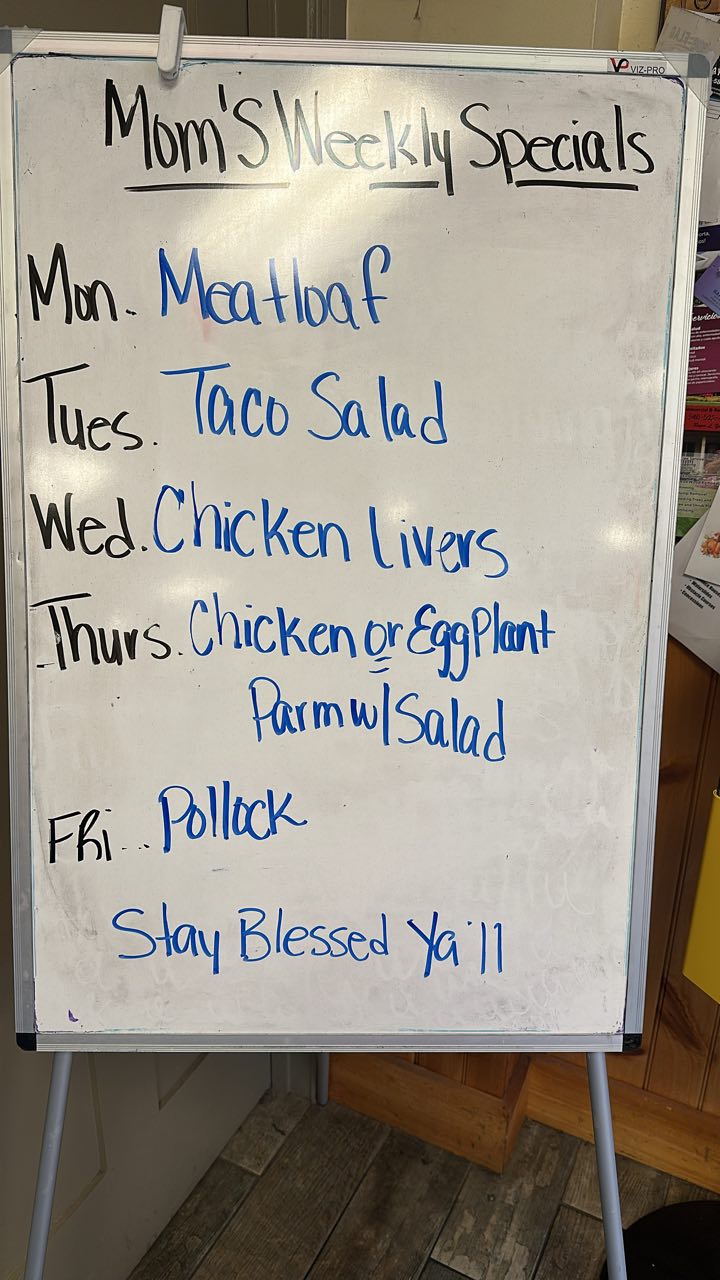 VIZ-PRO
Mom's Weekly Specials
Mon. Meatloaf
Tues. Taco Salad
Wed. Chicken Livers
Thurs. Chicken or EggPlant
Parm w/ Salad
Fri... Pollock
Stay Blessed Ya'll